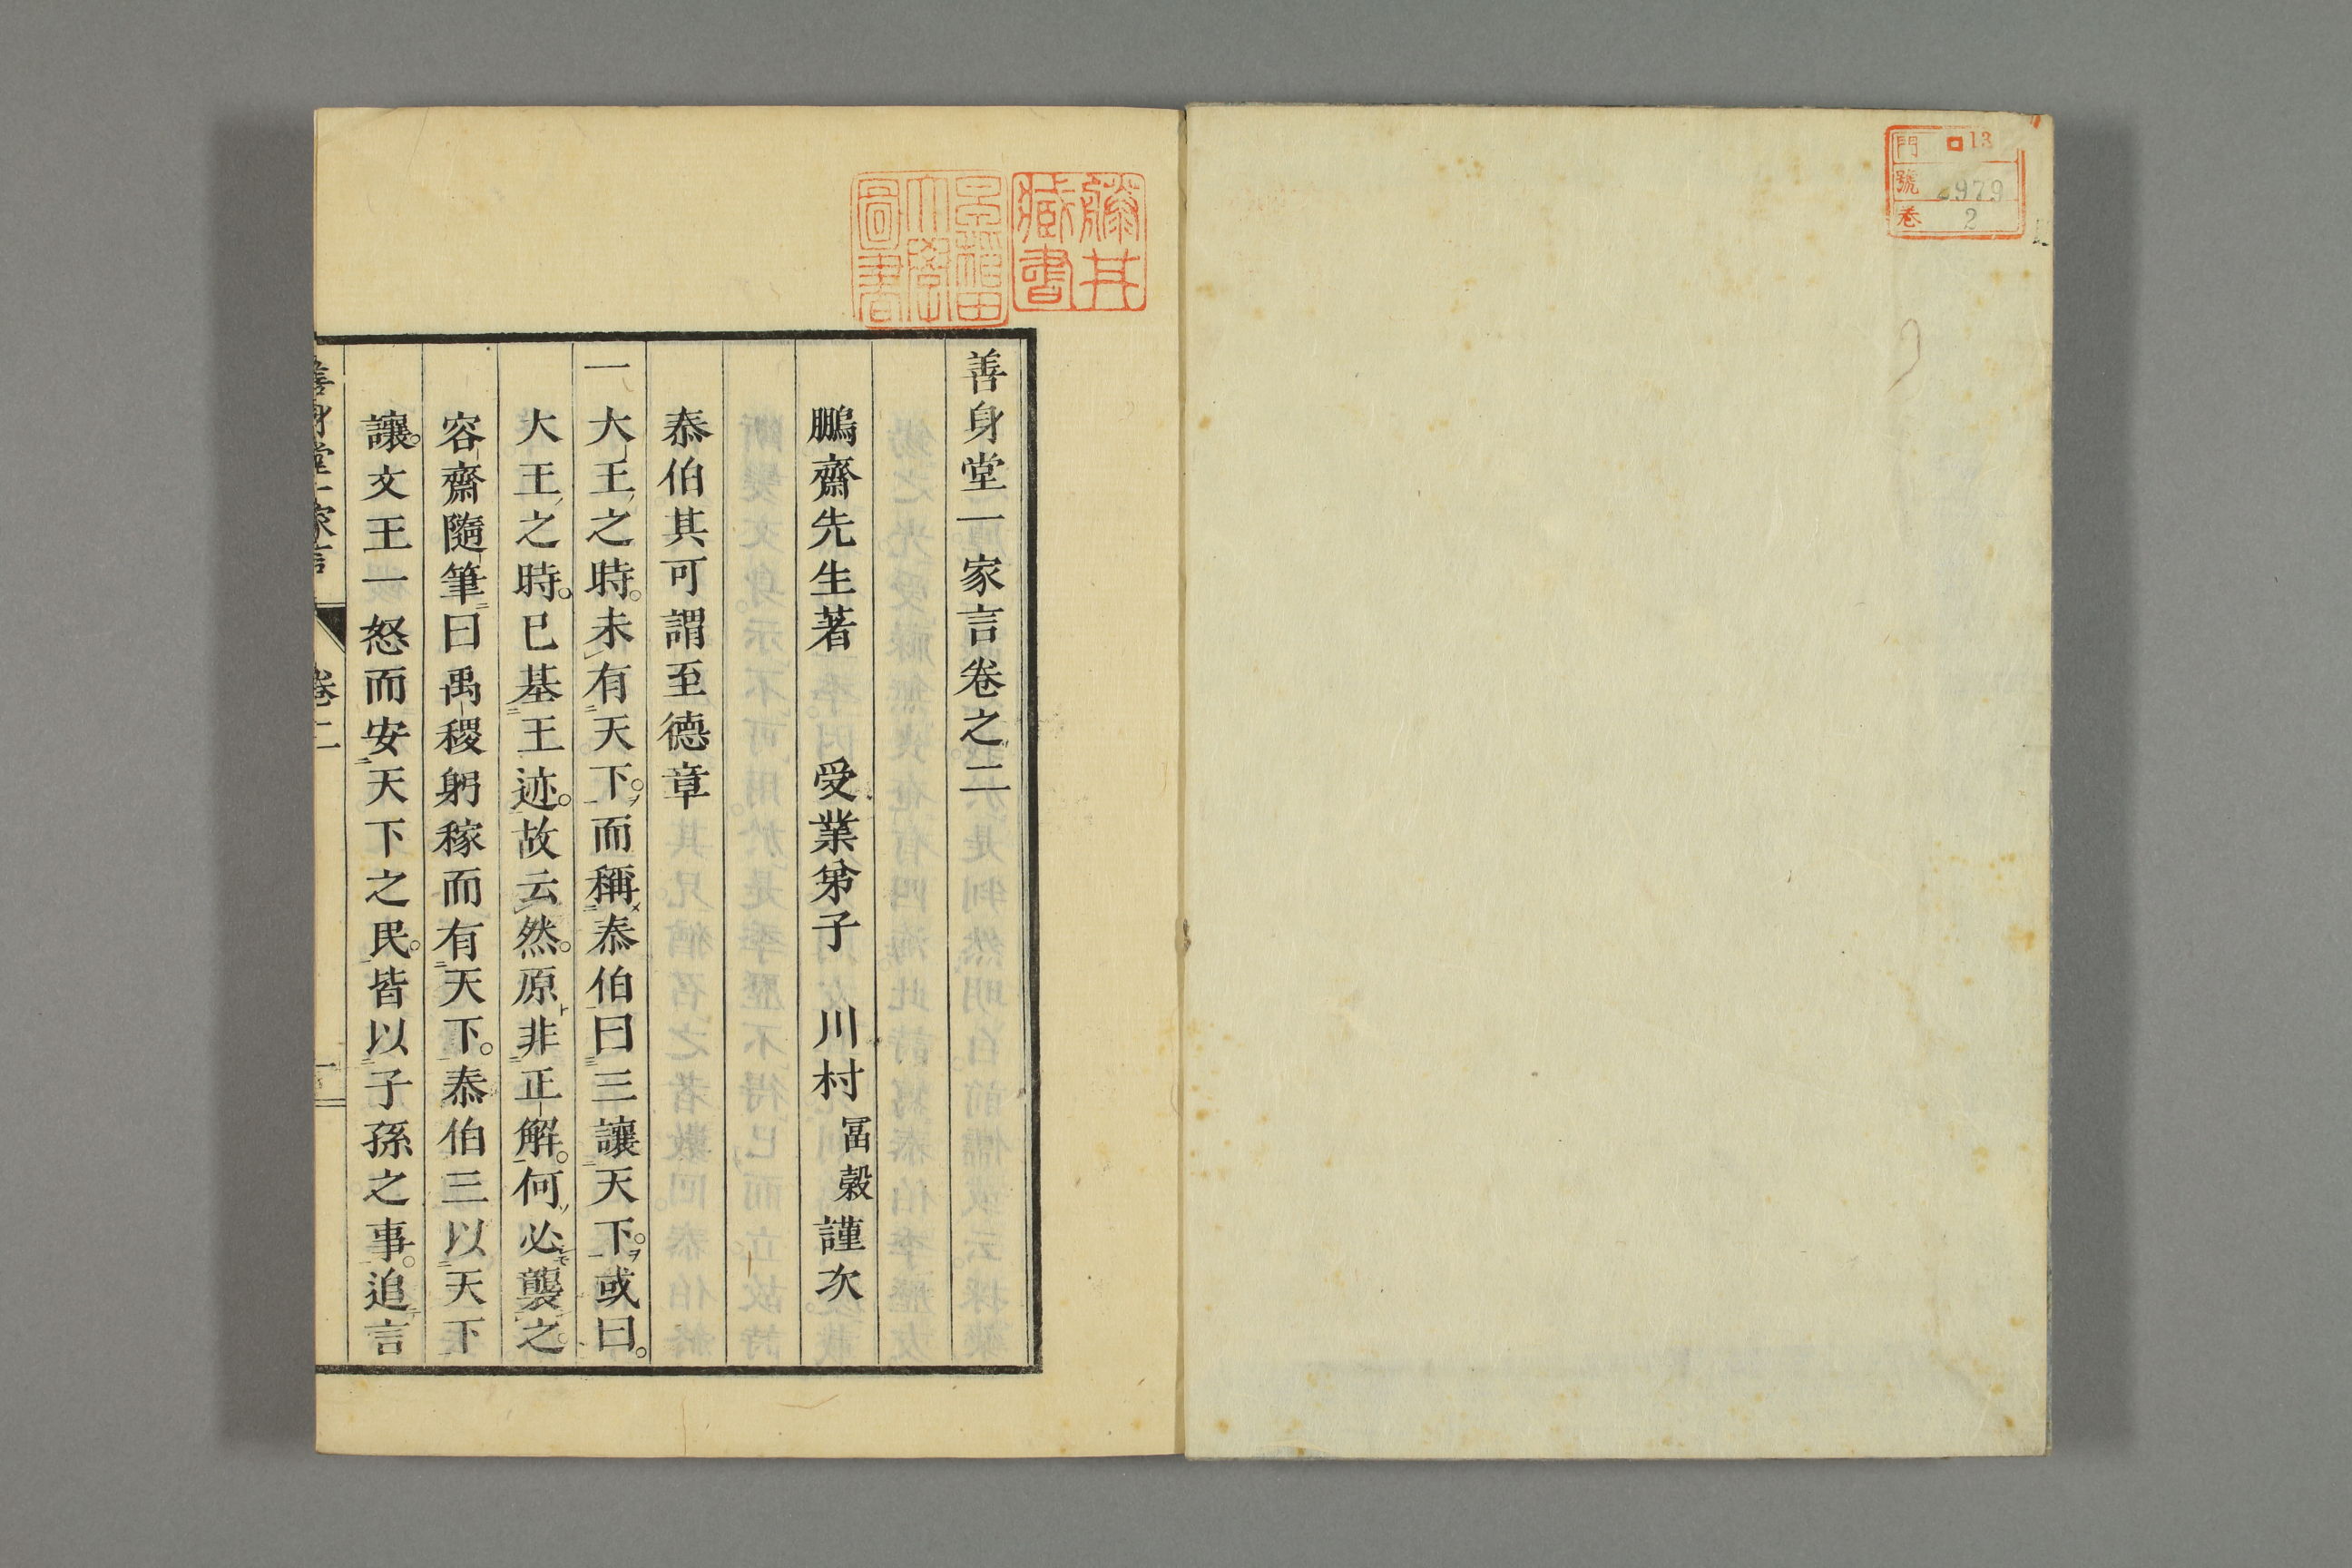 門 ロ13
號 2979
卷 2
藤井
藏書
早稲田
大學
圖書
善身堂一家言卷之二
鵬齋先生著 受業弟子 川村 冨穀 謹次
泰伯其可謂至德章
一大王之時。未有天下。而稱泰伯曰三讓天下。或曰。
大王之時。已基王迹。故云然。原非正解。何必襲之。
容齋隨筆曰禹稷躬稼而有天下。泰伯三以天下
讓。文王一怒而安天下之民。皆以子孫之事。追言
善身堂一家言 卷二 一